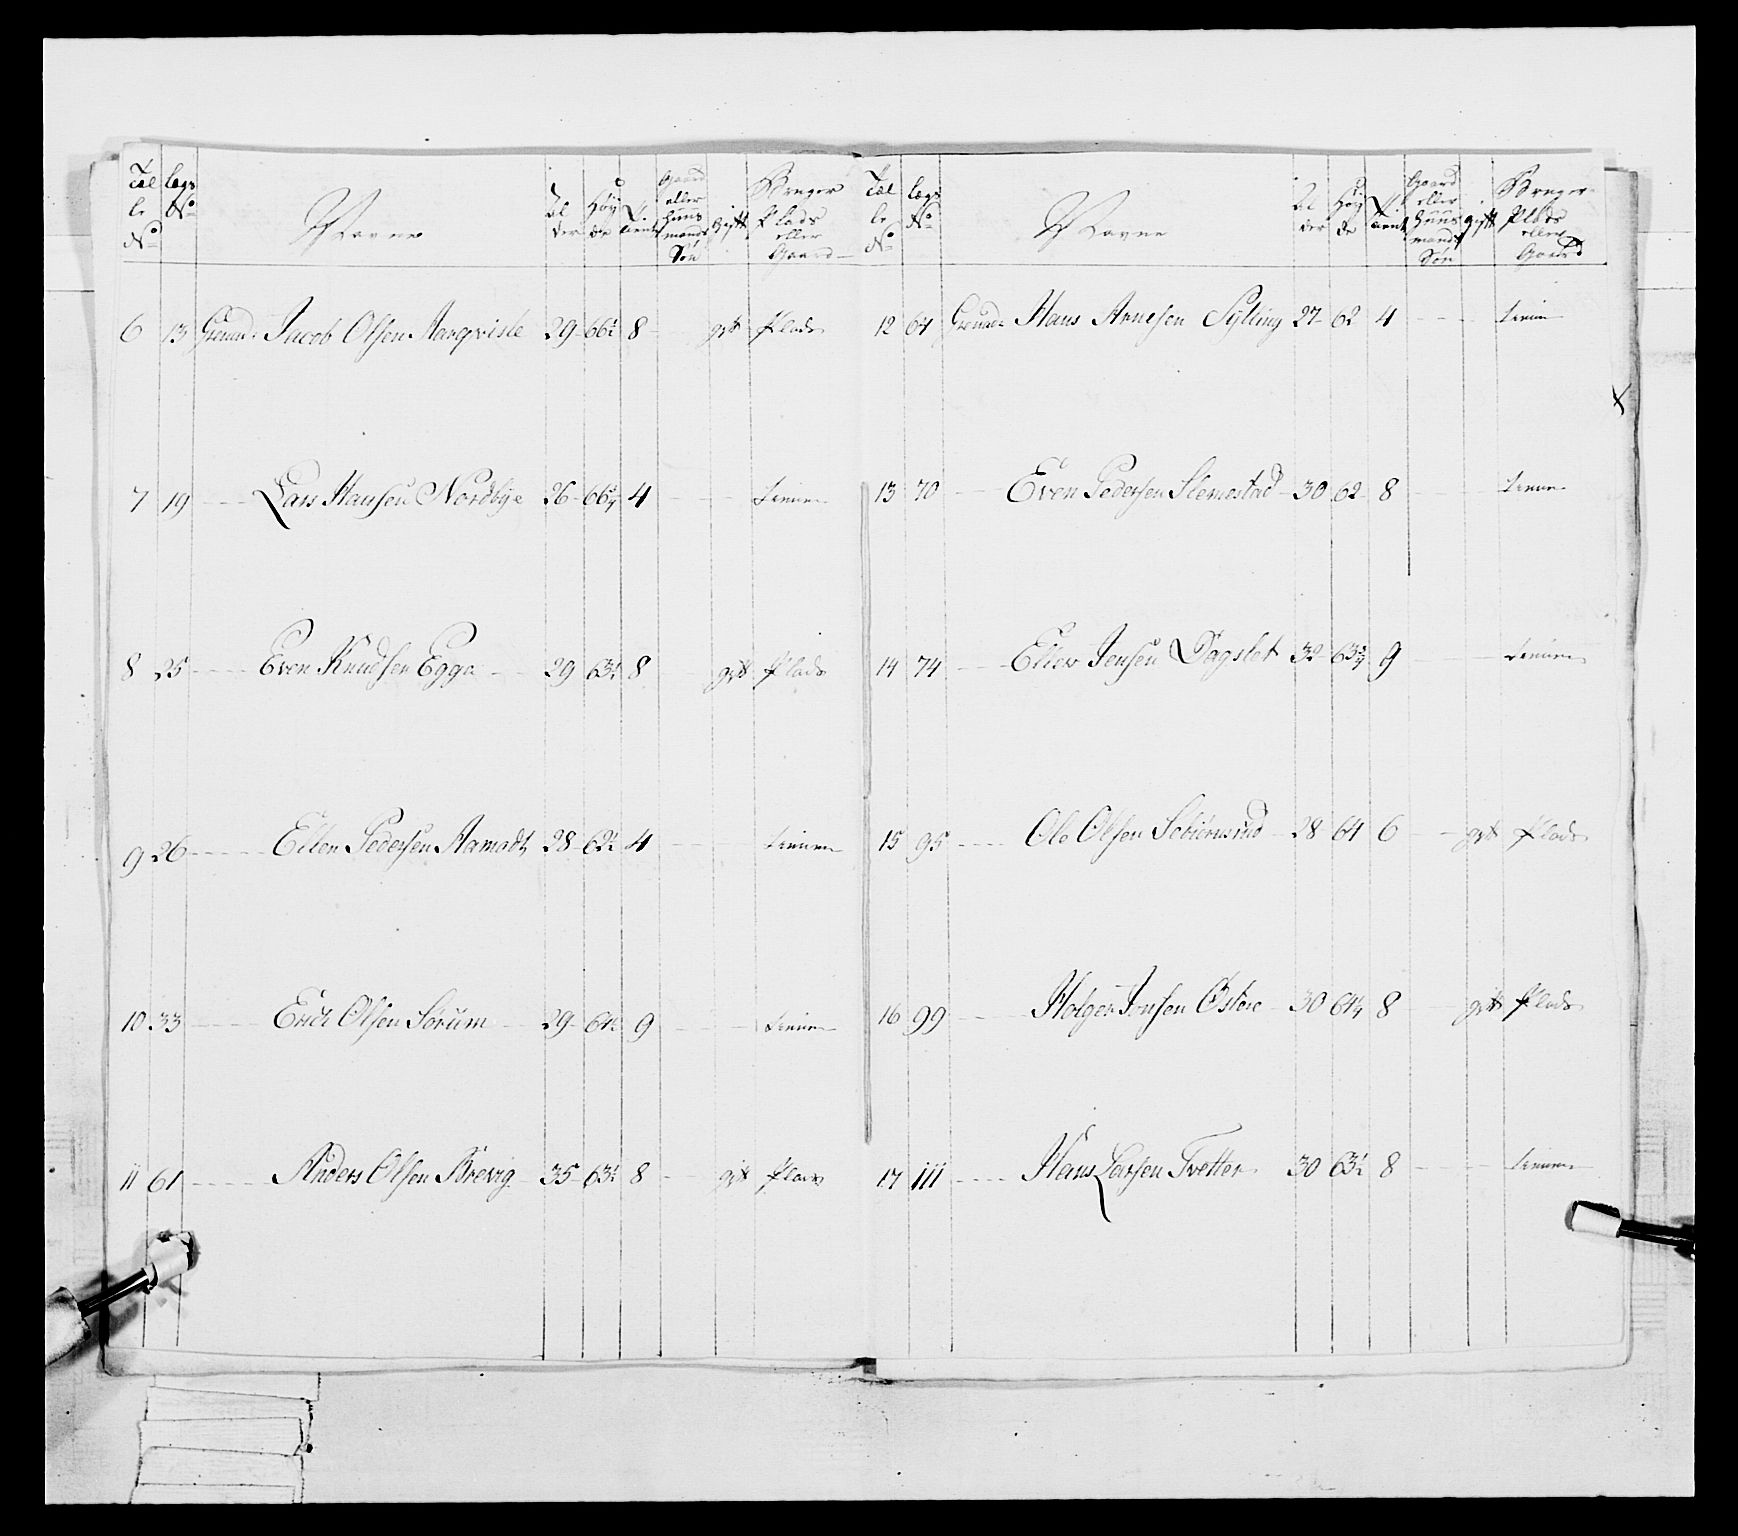 Tæl le No | Lægs No | Navne | Al der | Høy de | Tient | Gaard eller Huus mands Søn | Gift | Bruger Plads eller Gaard
6 13 Grenad: Jacob Olsen Aarqvisle 29 66½ 8 – gift Plads
7 19 – – Lars Hansen Nordbye 26 66¼ 4 – – tiener
8 25 – – Even Knudsen Egge – 29 63½ 8 – gift Plads
9 26 – – Ellen Pedersen Aamodt 28 62½ 4 – – tiener
10 33 – – Erich Olsen Sørum – 29 64½ 9 – – tiener
11 61 – – Anders Olsen Brevig 35 63½ 8 – gift Plads
Tæl le No | Lægs No | Navne | Al der | Høy de | Tient | Gaard eller Huus mands Søn | Gift | Bruger Plads eller Gaard
12 64 Grenad: Hans Arnesen Sylling 27 62 4 – – tiener
13 70 – – Even Pedersen Slemestad 30 62 8 – tiener
14 74 – – Ellev Jensen Dagslet 32 63¾ 9 – – tiener
15 95 – – Ole Olsen 28 64 6 – gift Plads
16 99 – – Holger Jensen Østbye 30 64¼ 8 – gift Plads
17 111 – – Hans Larsen Tvetter 30 63½ 8 – – tiener